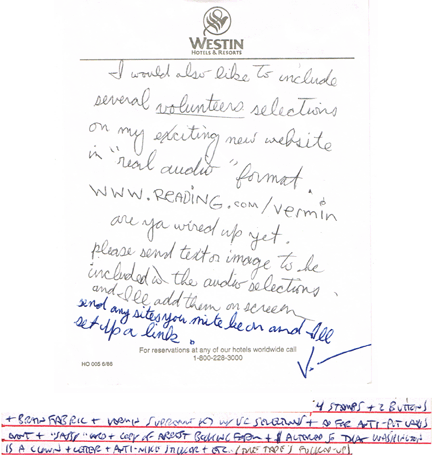 WESTIN
HOTELS & RESORTS
I would also like to include
several volunteers selections
on my exciting new website
in "real audio" format.
WWW.READING.com/vermin
are ya wired up yet.
please send text or image to be
included w the audio selections
and I'll add them on screen
send any sites you mite be on and I'll
set up a link.
V.
For reservations at any of our hotels worldwide call
1-800-228-3000
HO 005 6/88
4 STAMPS + 2 BUTTONS
+ BRAIN FABRIC + VERMIN SUPREME
+ COPY OF ARREST BOOKING FORM +
IS A CLOWN + LETTER + ANTI-NIKE STICKER + ETC.